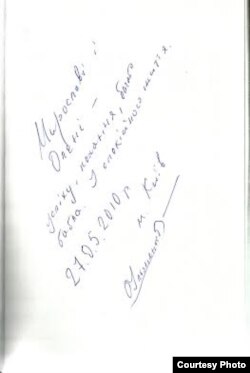 Мирославі і
Олені —
успіху, кохання, багато
бабла. У спокійного життя.
27.05.2010 р
м Київ
Courtesy Photo